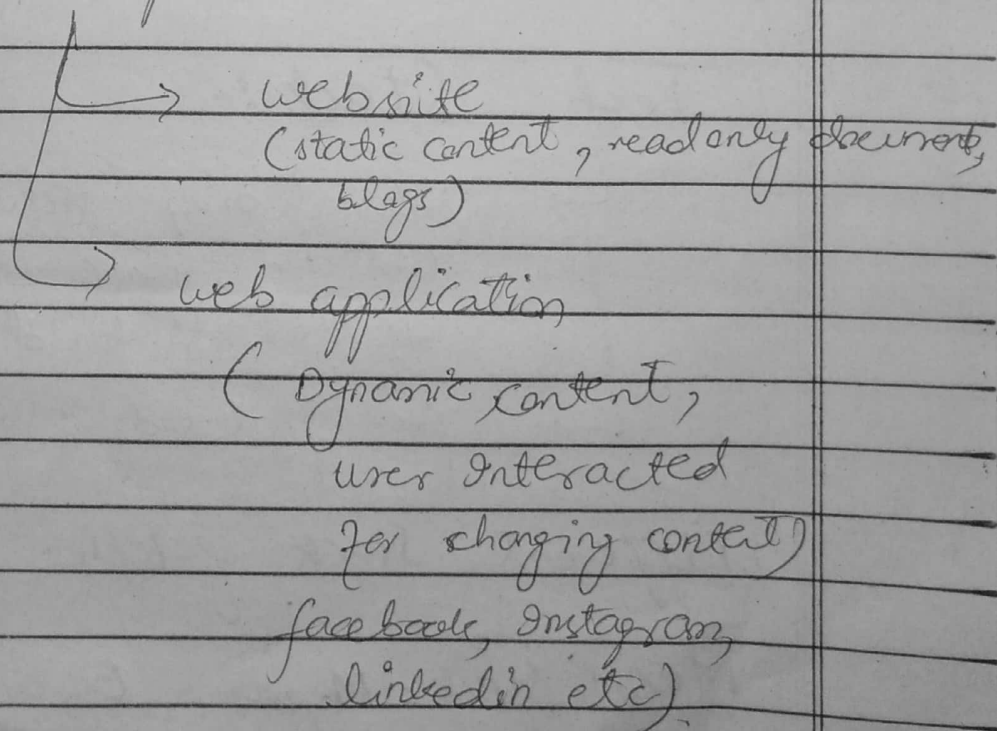 → website
(static content, readonly document,
blogs)
→ web application
( Dynamic content,
user Interacted
for changing content)
facebook, Instagram,
linkedin etc)